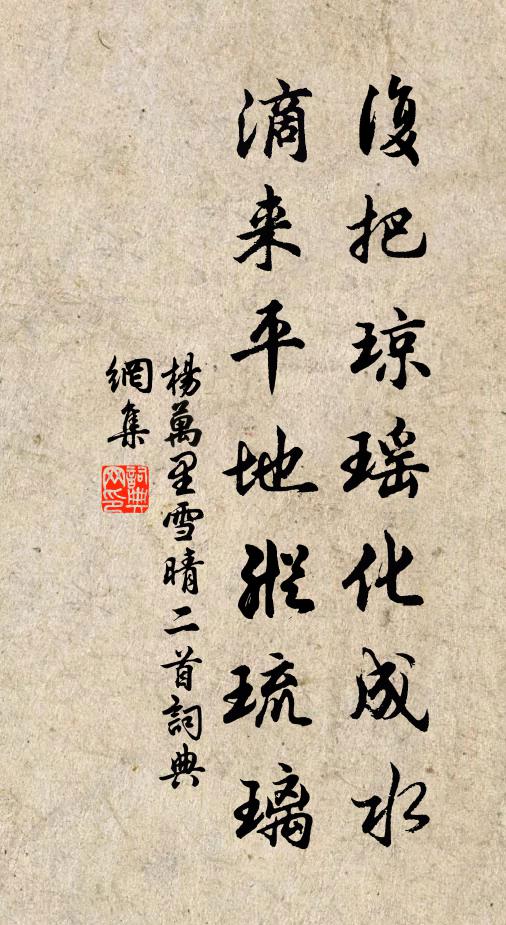 復把琼瑶化成水
滴来平地纵琉璃
楊萬里雪晴二首詞典
網集
詞典
网印